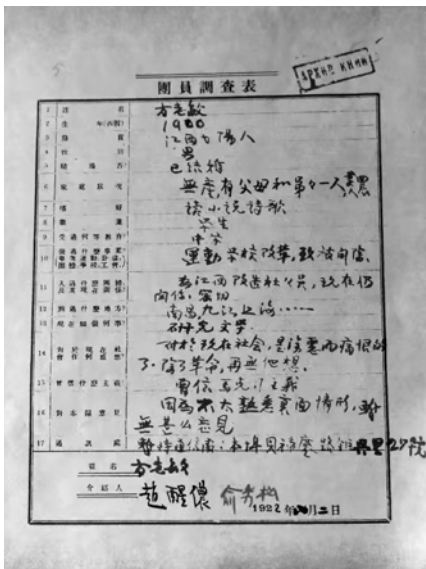 АРХИВ КИМИ
團員調查表
1 姓名 方志敏
2 生年(西曆) 1900
3 籍貫 江西弋陽人
4 性別 男
5 結婚否 已結婚
6 家庭狀況 無產有父母和弟々一人業農
7 嗜好 讀小說詩歌
8 職業 學生
9 受過何等教育? 中等
10 運動學校改革,致被開除。
11 在江西改造社社員,現在仍
向信,密切
12 到過什麼地方? 南昌九江上海……
13 現在做何事? 研究文學.
14 對於現在社 對於現在社會,是深惡而痛恨的
了.除了革命,再無他想.
15 曾信什麼主義 曾信馬克斯主義
16 對本團意見 因為不大熟悉裏面情形,暫
無甚么意見
17 通訊處 暫時通信處:本埠貝禘鏖路
簽名 方志敏
介紹人 趙醒儂 俞秀松
1922年 月二日